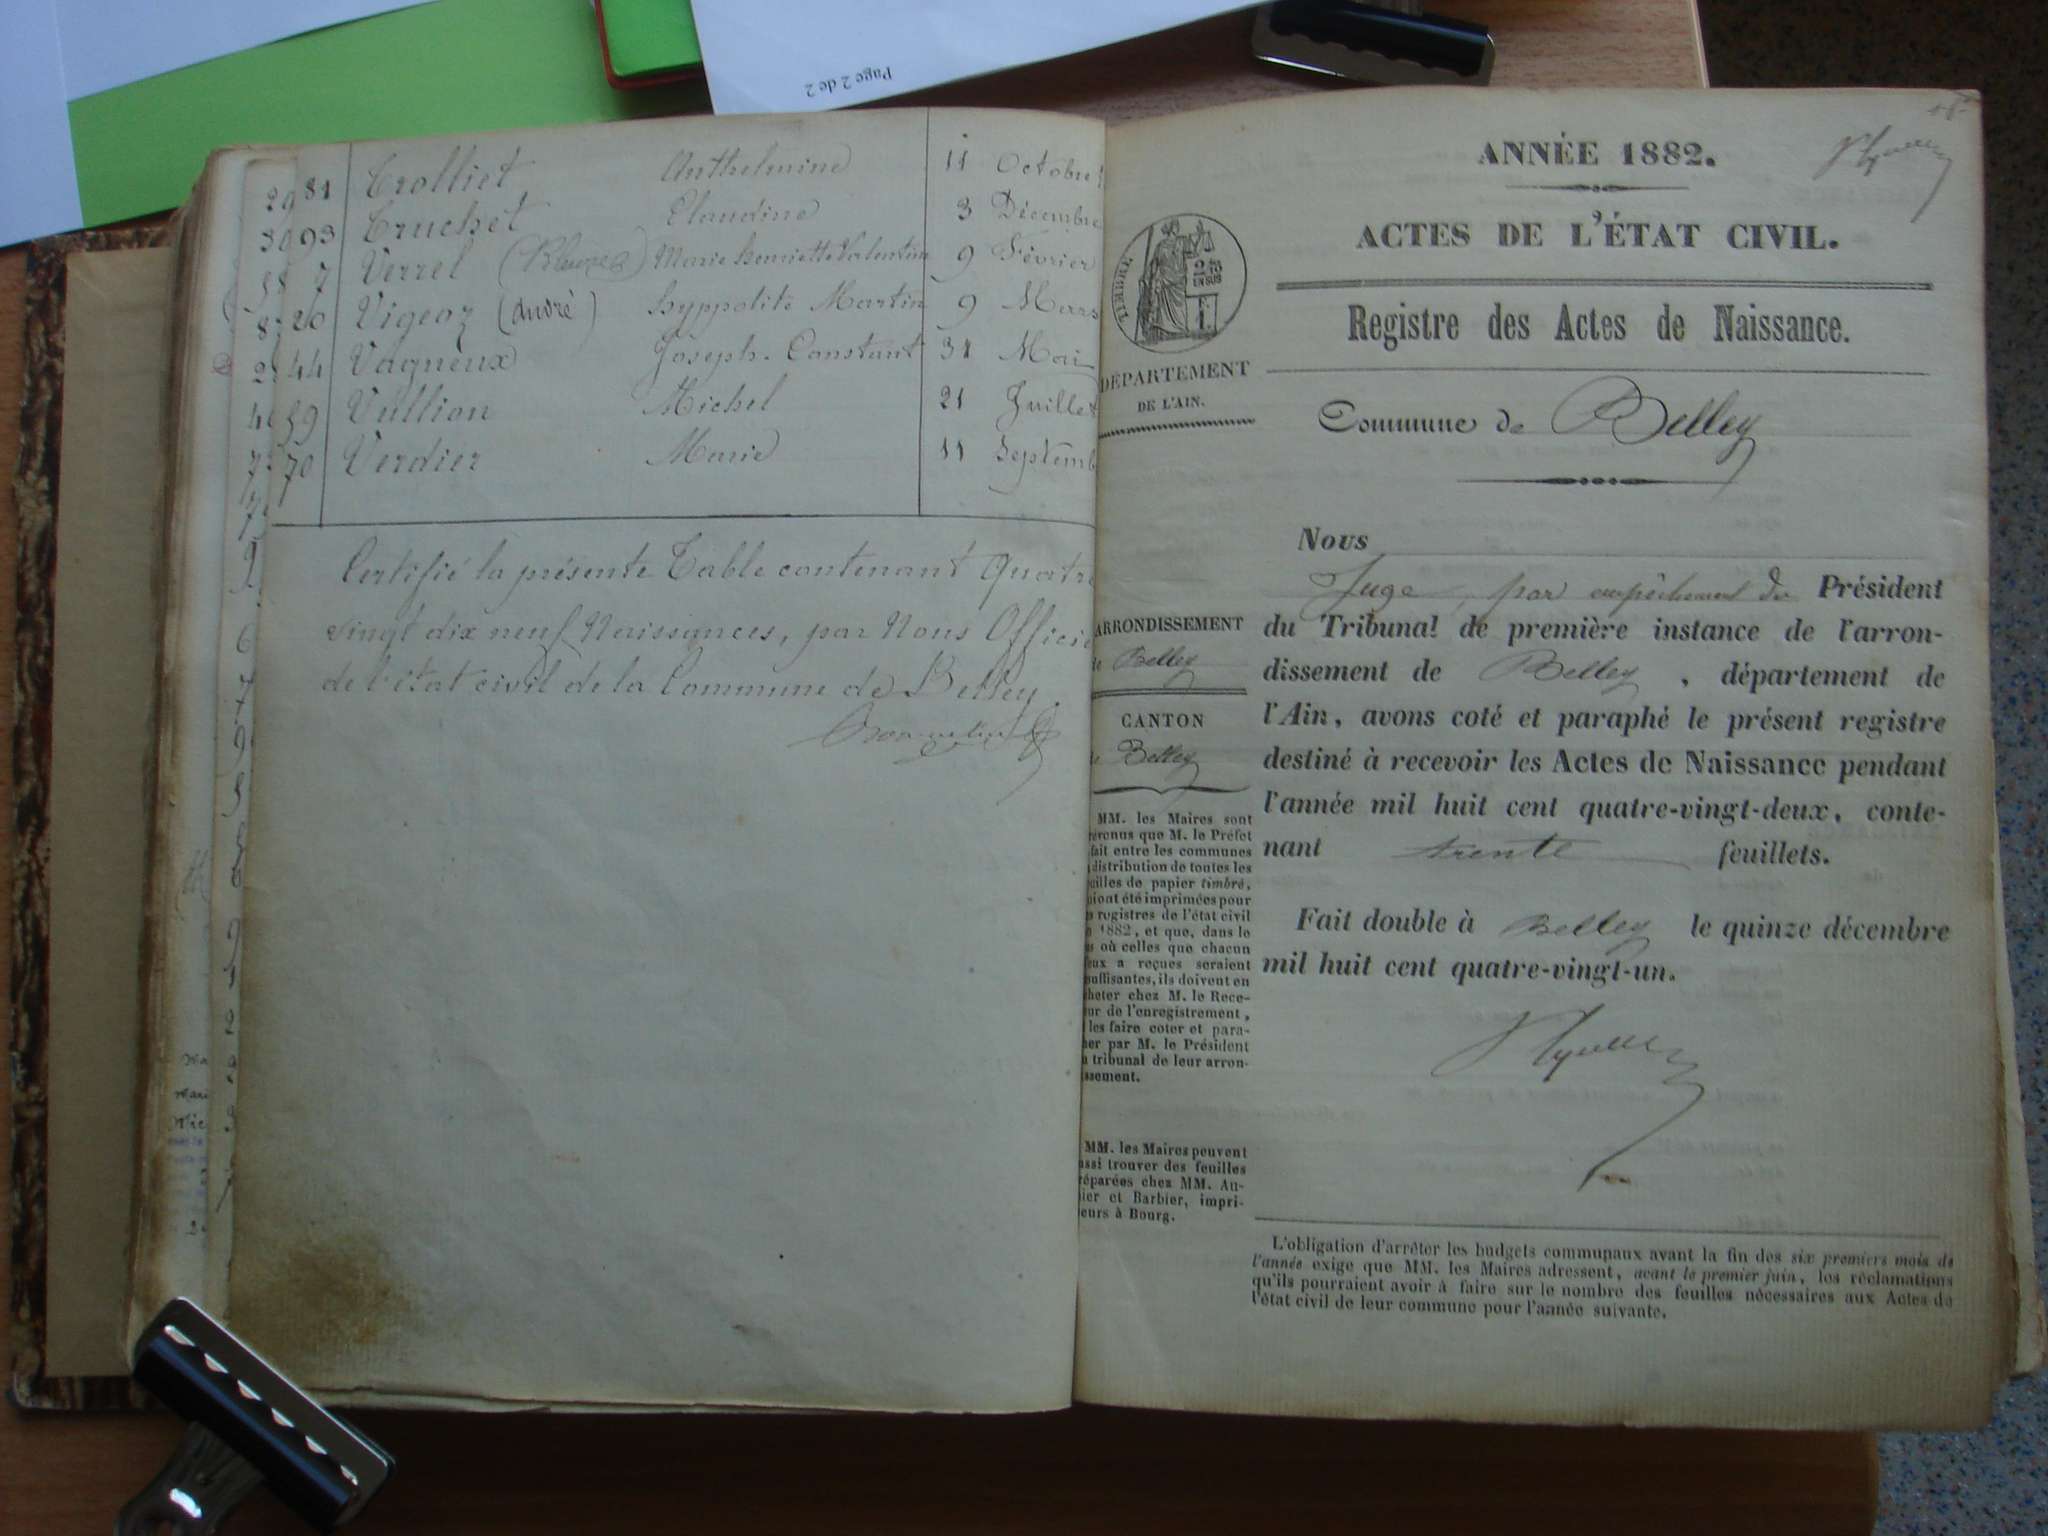 Page 2 de 2
81 Trolliet Anthelmine 11 Octobre
93 Truchet Claudine 3 Décembre
7 Verrel Marie henriette Valentine 9 Février
20 Vigeoz (André) hyppolite Martin 9 Mars
44 Vagneux Joseph-Constant 31 Mai
59 Vullion Michel 21 Juillet
70 Verdier Marie 11 Septemb
Certifié la présente Table contenant Quatre
vingt dix neuf Naissances, par Nous Officie
de l'état civil de la Commune de Belley
ANNÉE 1882.
ACTES DE L'ÉTAT CIVIL.
Registre des Actes de Naissance.
TIMBRE
2/10
EN SUS
DÉPARTEMENT
DE L'AIN.
Commune de Belley
Nous
Juge, par empêchement du Président
du Tribunal de première instance de l'arron-
dissement de Belley, département de
l'Ain, avons coté et paraphé le présent registre
destiné à recevoir les Actes de Naissance pendant
l'année mil huit cent quatre-vingt-deux, conte-
nant trente feuillets.
Fait double à Belley le quinze décembre
mil huit cent quatre-vingt-un.
ARRONDISSEMENT
de Belley
CANTON
Belley
MM. les Maires sont
révenus que M. le Préfet
fait entre les communes
distribution de toutes les
uilles de papier timbré,
uiont été imprimées pour
s registres de l'état civil
1882, et que, dans le
s où celles que chacun
eux a reçues seraient
suffisantes, ils doivent en
heter chez M. le Rece-
ur de l'enregistrement,
les faire coter et para-
er par M. le Président
u tribunal de leur arron-
ssement.
MM. les Maires peuvent
ussi trouver des feuilles
réparées chez MM. Au-
ier et Barbier, impri-
eurs à Bourg.
L'obligation d'arrêter les budgets communaux avant la fin des six premiers mois de
l'année exige que MM. les Maires adressent, avant le premier juin, les réclamations
qu'ils pourraient avoir à faire sur le nombre des feuilles nécessaires aux Actes de
l'état civil de leur commune pour l'année suivante.